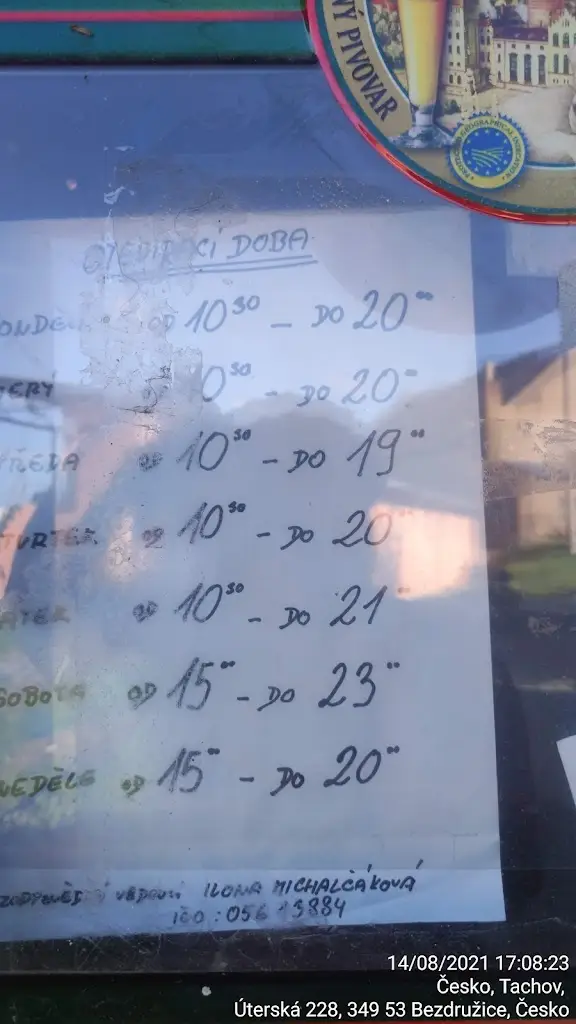 VÝ PIVOVAR
OTEVÍRACÍ DOBA
ONDĚL OD 10³⁰ – DO 20⁰⁰
ERÝ 0³⁰ – DO 20⁰⁰
ŘEDA OD 10³⁰ – DO 19⁰⁰
TVRTEK OD 10³⁰ – DO 20⁰⁰
ÁTEK OD 10³⁰ – DO 21⁰⁰
SOBOTA OD 15⁰⁰ – DO 23⁰⁰
NEDĚLE OD 15⁰⁰ – DO 20⁰⁰
ZODPOVĚDNÝ VEDOUCÍ ILONA MICHALČÁKOVÁ
IČO: 05613884
14/08/2021 17:08:23
Česko, Tachov,
Úterská 228, 349 53 Bezdružice, Česko